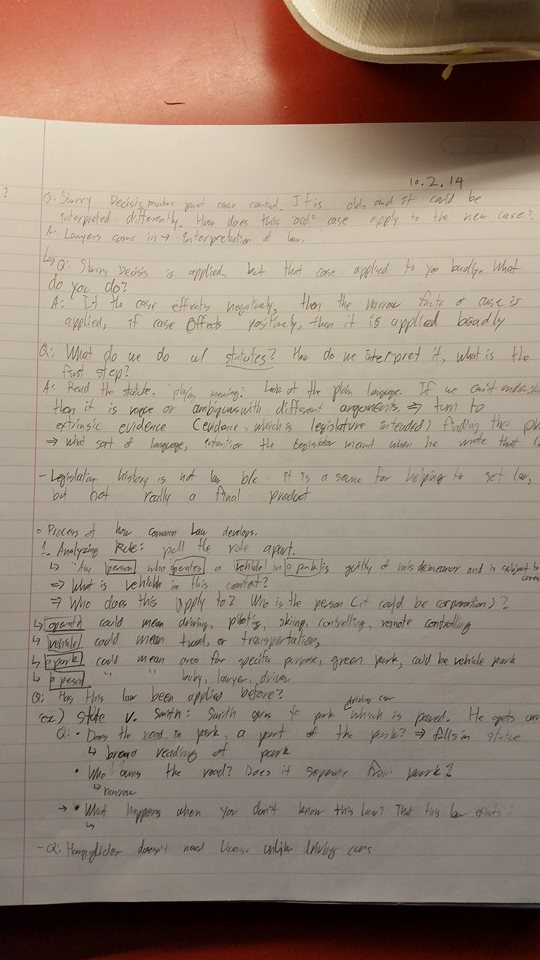 10.2.14
?
Q: Starry Decisis, makes past case control. It is old and it could be
interpreted differently. How does this case apply to the new case?
A: Lawyers come in → interpretation of law.
↳ Q: Starry Decisis is applied, but that case applied to you badly. What
do you do?
A: If the case effects negatively, then the narrow facts of case is
applied, if case effects positively, then it is applied boadly
Q: What do we do w/ statutes? How do we interpret it, what is the
first step?
A: Read the statute. "plain meaning: Look at the plain language. If we can't
then it is vague or ambiguous with different arguments. ⇒ turn to
extrinsic evidence (evidence, which is legislature intended) finding the
⇒ what sort of language, intention the legislator meant when he wrote that
- Legislative history is not law b/c it is a source for helping to set law,
but not really a final product
• Process of how common law develops.
1. Analyzing Rule: pull the rule apart.
↳ "Any person who operates a vehicle in a park is guilty of misdemeanor and is subject to
⇒ What is vehicle in this context?
⇒ Who does this apply to? Who is the person (it could be corporation)?
↳ operate could mean driving, piloting, skiing, controlling, remote controlling
↳ vehicle could mean travel, or transportation,
↳ a park could mean area for specific purpose, green park, could be vehicle park
↳ a person " " baby, lawyer, driver
Q: Has this law been applied before?
driving car
ex) state v. Smith: Smith goes to park which is paved. He gets
Q: • Does the road in park, a part of the park? ⇒ falls in
↳ broad reading of park
• Who owns the road? Does it separate from park?
↳ narrow
→ • What happens when you don't know this law? That this law exists
↳
- Q: Hangglider doesn't need license unlike driving cars